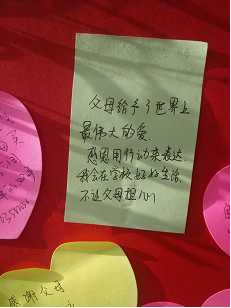 父母给予了世界上
最伟大的爱.
感恩用行动来表达.
我会在学校好好生活.
不让父母担心
感谢父母